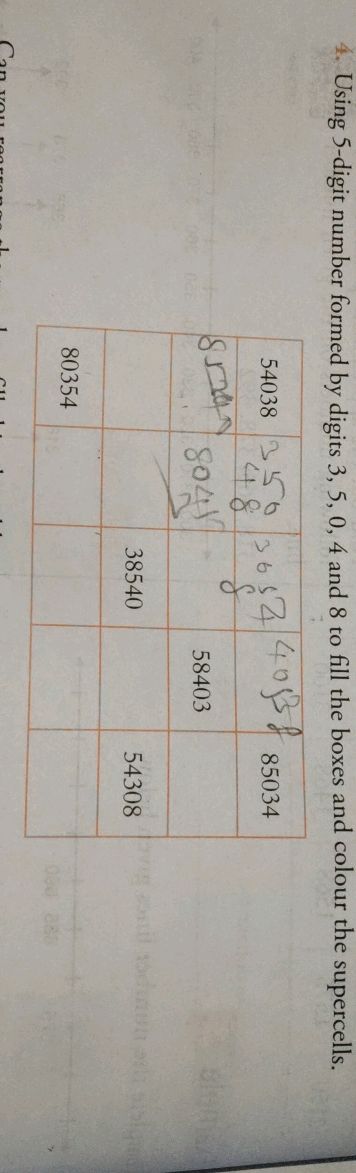 4. Using 5-digit number formed by digits 3, 5, 0, 4 and 8 to fill the boxes and colour the supercells.
54038 350 48 3054 8 4053 8 85034
8045 58403
38540 54308
80354
Can you rearrange the